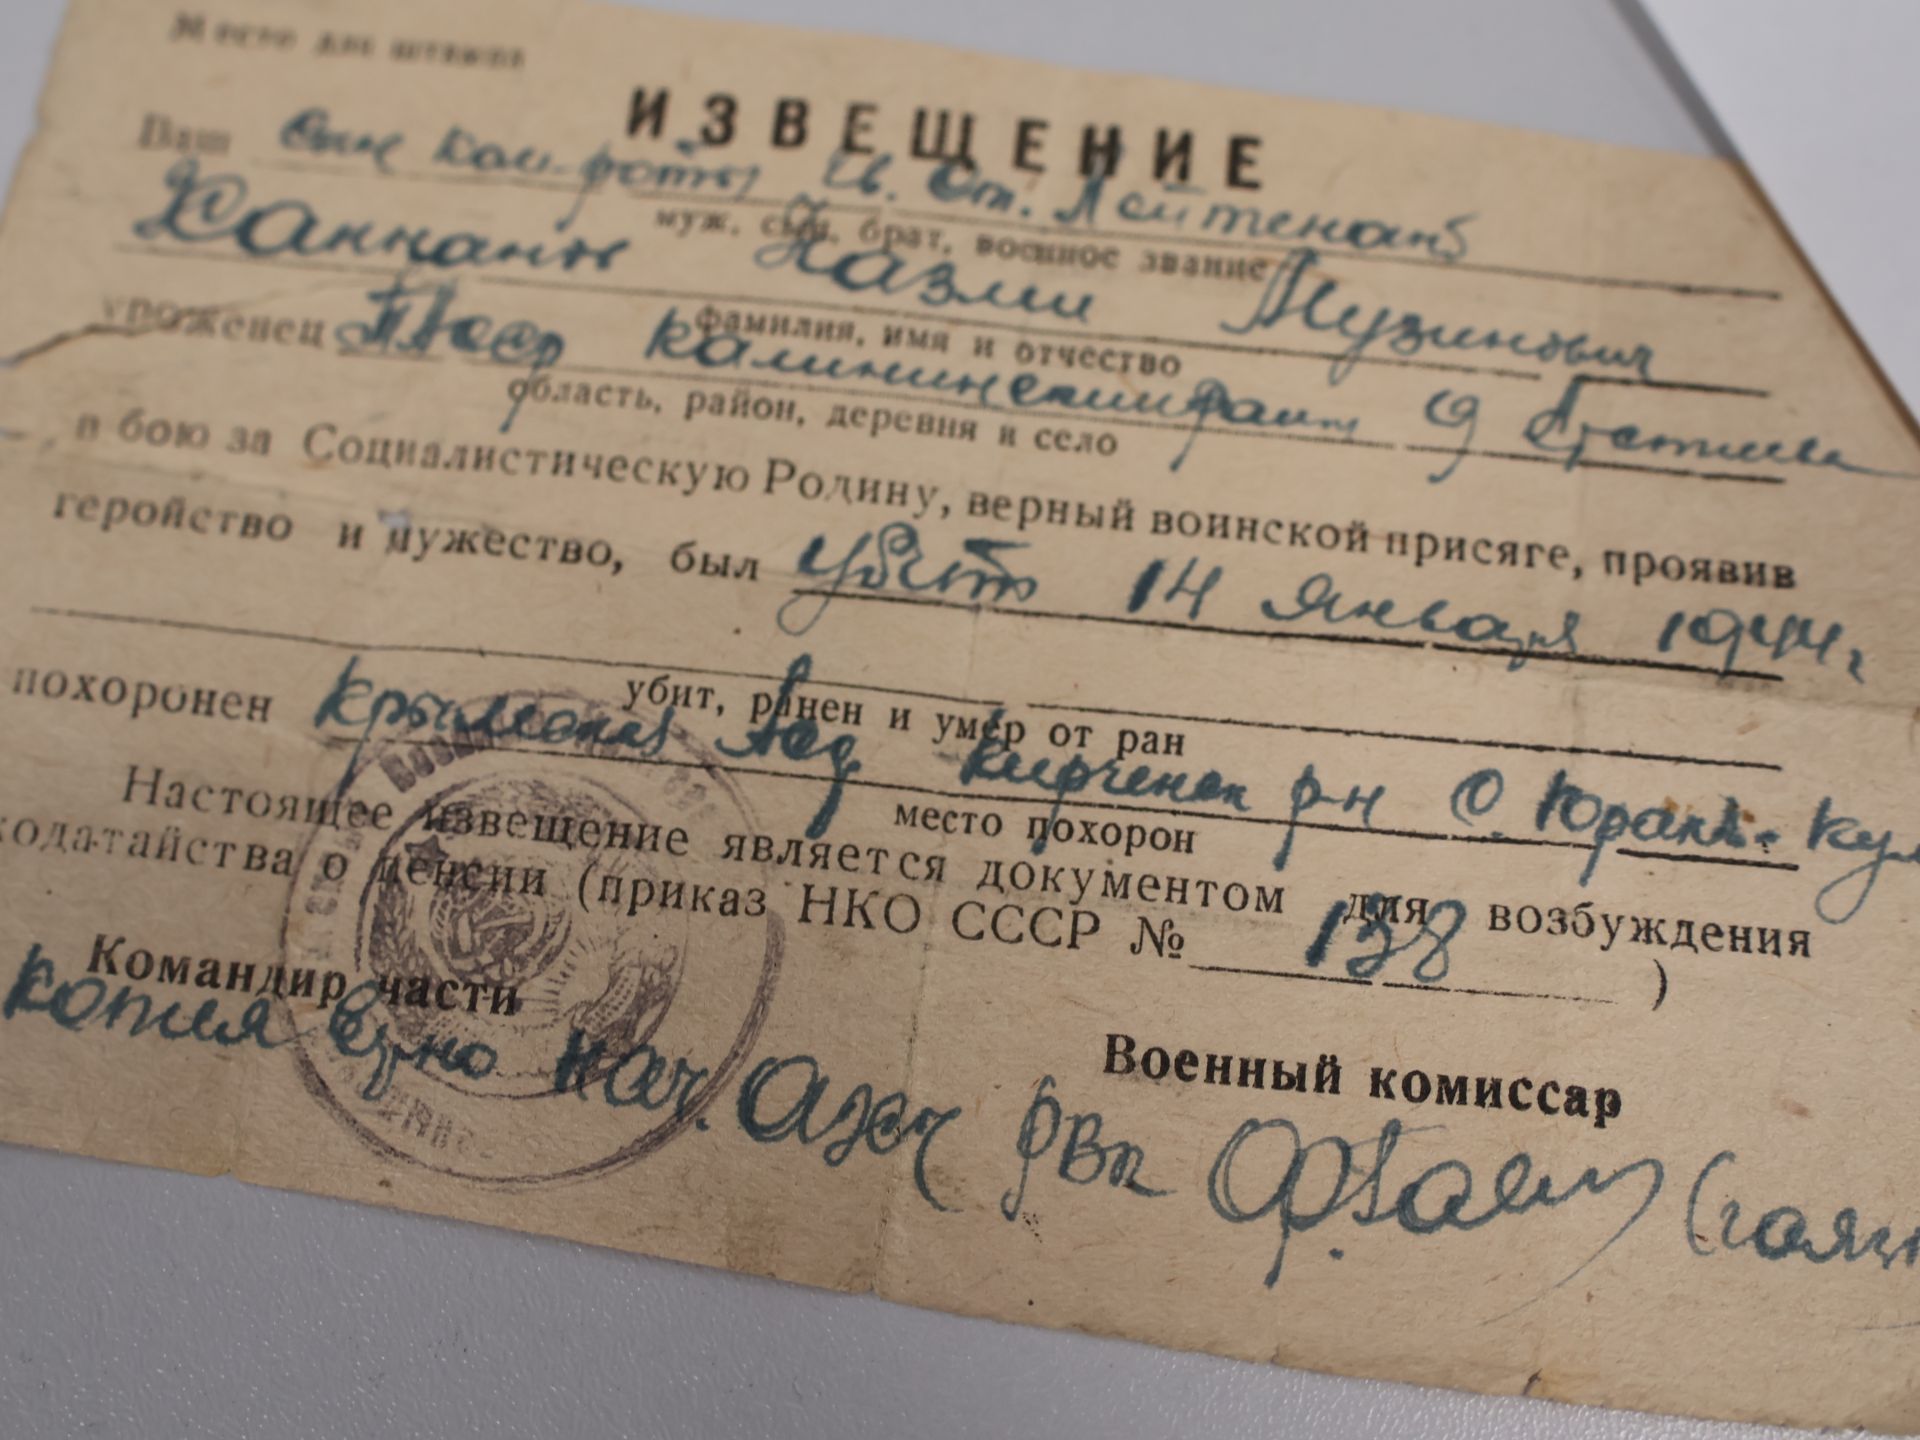 Место для штампа
ИЗВЕЩЕНИЕ
Ваш сын ком-роты Гв. Ст. Лейтенант
муж, сын, брат, военное звание
Назми Музинович
фамилия, имя и отчество
уроженец
область, район, деревня и село
в бою за Социалистическую Родину, верный воинской присяге, проявив
геройство и мужество, был убит 14 января 1944 г
убит, ранен и умер от ран
похоронен Крымская р-н с.
место похорон
Настоящее извещение является документом для возбуждения
ходатайства о пенсии (приказ НКО СССР № 138 )
Командир части
Военный комиссар
копия верно нач.